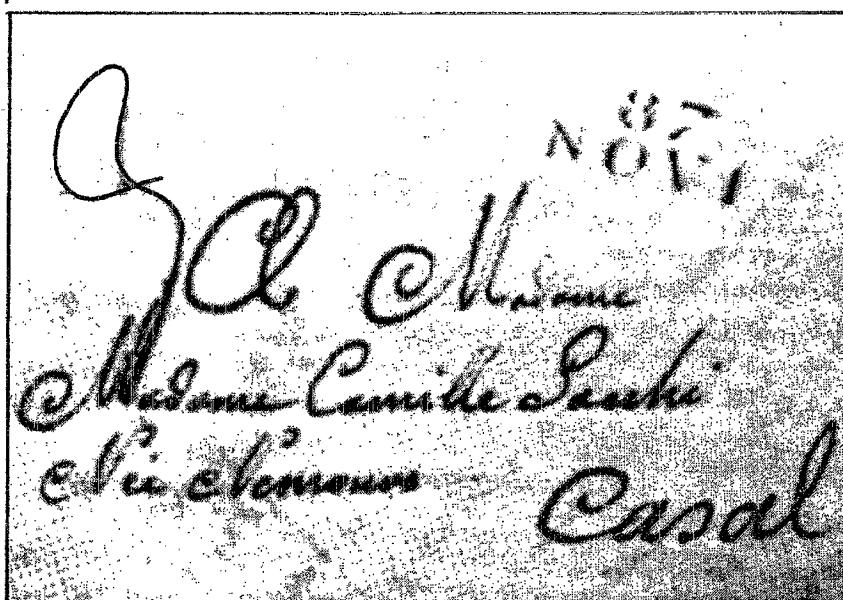 87
NOVI
A Madame
Madame Camille Sacchi
Née
Casal